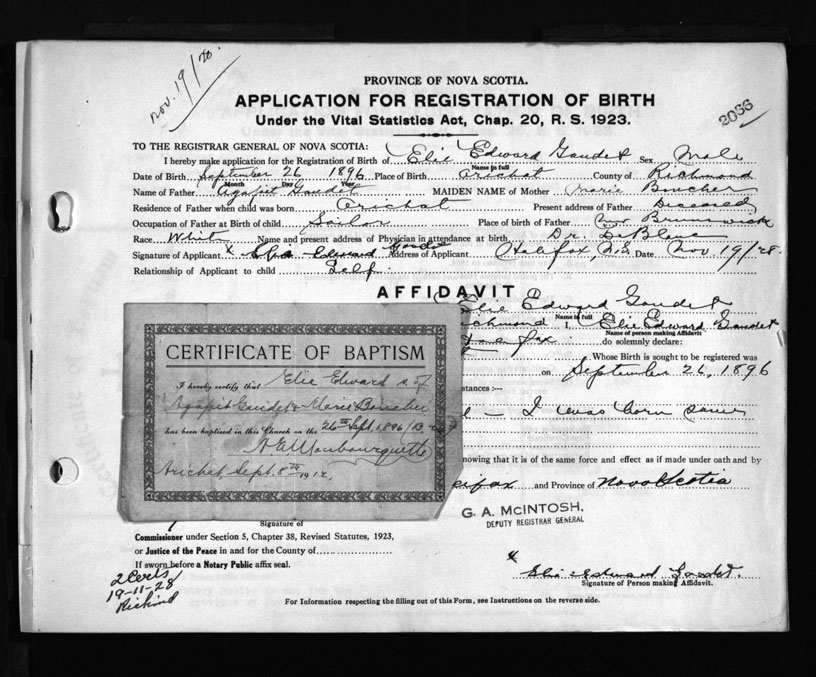 Nov. 19/28.
2066
PROVINCE OF NOVA SCOTIA.
APPLICATION FOR REGISTRATION OF BIRTH
Under the Vital Statistics Act, Chap. 20, R. S. 1923.
TO THE REGISTRAR GENERAL OF NOVA SCOTIA:
I hereby make application for the Registration of Birth of Elie Edward Gaudet Sex Male
Name in full
Date of Birth September 26 1896 Place of Birth Arichat County of Richmond
Month Day Year
Name of Father Agapit Gaudet MAIDEN NAME of Mother Marie Boucher
Residence of Father when child was born Arichat Present address of Father Deceased
Occupation of Father at Birth of child Sailor Place of birth of Father New Brunswick
Race White Name and present address of Physician in attendance at birth Dr. LeBlanc
Signature of Applicant x Elie Edward Gaudet Address of Applicant Halifax, N.S. Date Nov. 19/28.
Relationship of Applicant to child Self.
AFFIDAVIT
Elie Edward Gaudet
Name in full
chmond I, Elie Edward Gaudet
Name of person making Affidavit
do solemnly declare:
Whose Birth is sought to be registered was
on September 26, 1896
stances:—
I was born
nowing that it is of the same force and effect as if made under oath and by
ifax and Province of Nova Scotia
G. A. McINTOSH,
DEPUTY REGISTRAR GENERAL
CERTIFICATE OF BAPTISM
I hereby certify that Elie Edward s. of
Agapit Gaudet & Marie Boucher
has been baptized in this Church on the 26th Sept. 1896
A E Mombourquette
Arichat, Sept. 8th 1912.
Signature of
Commissioner under Section 5, Chapter 38, Revised Statutes, 1923,
or Justice of the Peace in and for the County of
If sworn before a Notary Public affix seal.
2 Certs
19-11-28
x Elie Edward Gaudet.
Signature of Person making Affidavit.
For Information respecting the filling out of this Form, see Instructions on the reverse side.